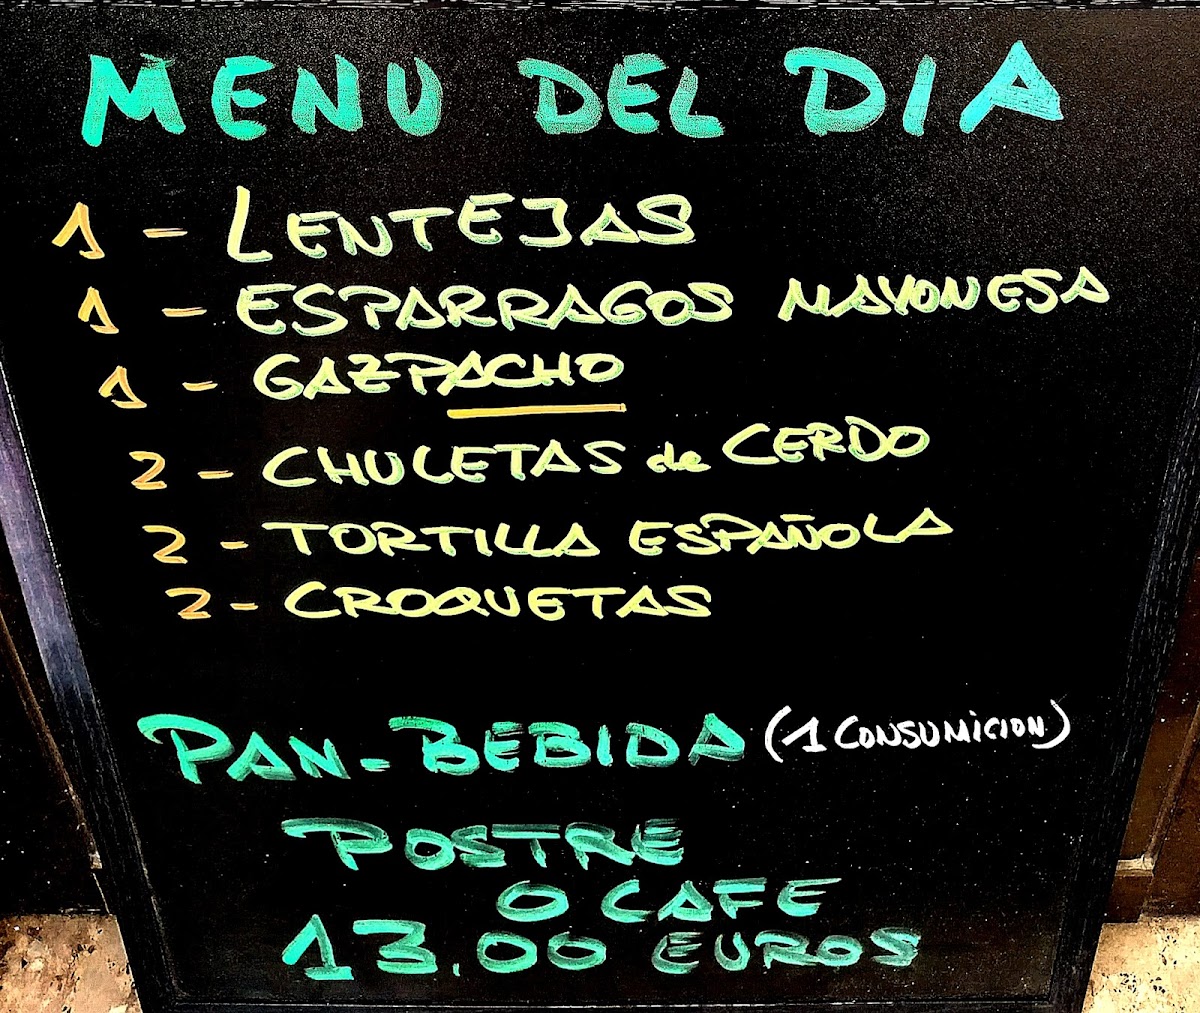 MENU DEL DIA
1 - LENTEJAS
1 - ESPARRAGOS MAYONESA
1 - GAZPACHO
2 - CHULETAS de CERDO
2 - TORTILLA ESPAÑOLA
2 - CROQUETAS
PAN - BEBIDA (1 CONSUMICION)
POSTRE
O CAFE
13.00 EUROS